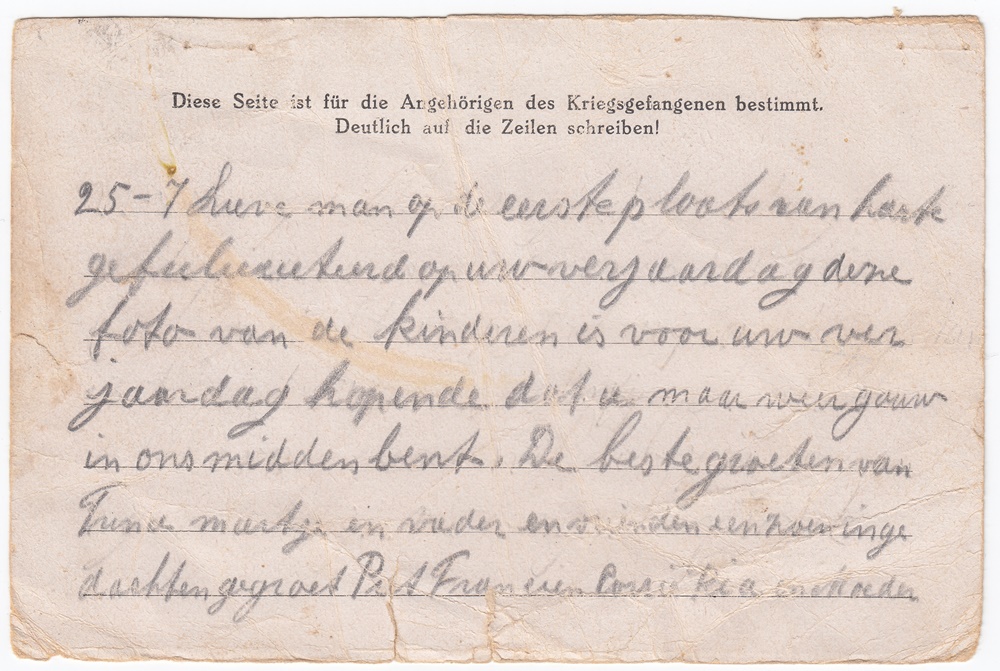 Diese Seite ist für die Angehörigen des Kriegsgefangenen bestimmt.
Deutlich auf die Zeilen schreiben!
25-7 Lieve man op de eerste plaats van harte
gefeliciteerd op uw verjaardag deze
foto van de kinderen is voor uw ver
jaardag hopende dat u maar weer gouw
in ons midden bent. De beste groeten van
en vader en vrienden een zoen in ge
dachten gegroet Piet Francien Ria en Moeder